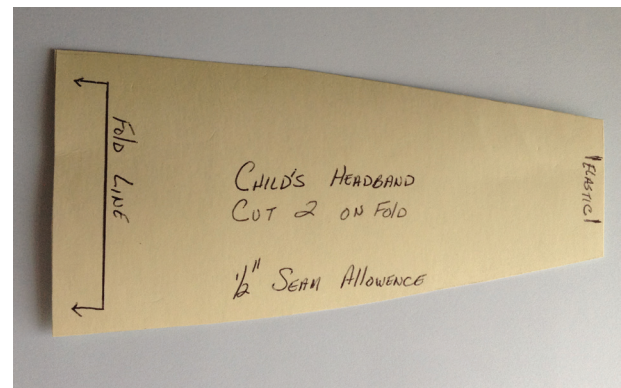 Fold Line
Child's Headband
Cut 2 on Fold
1/2" Seam Allowence
|Elastic|